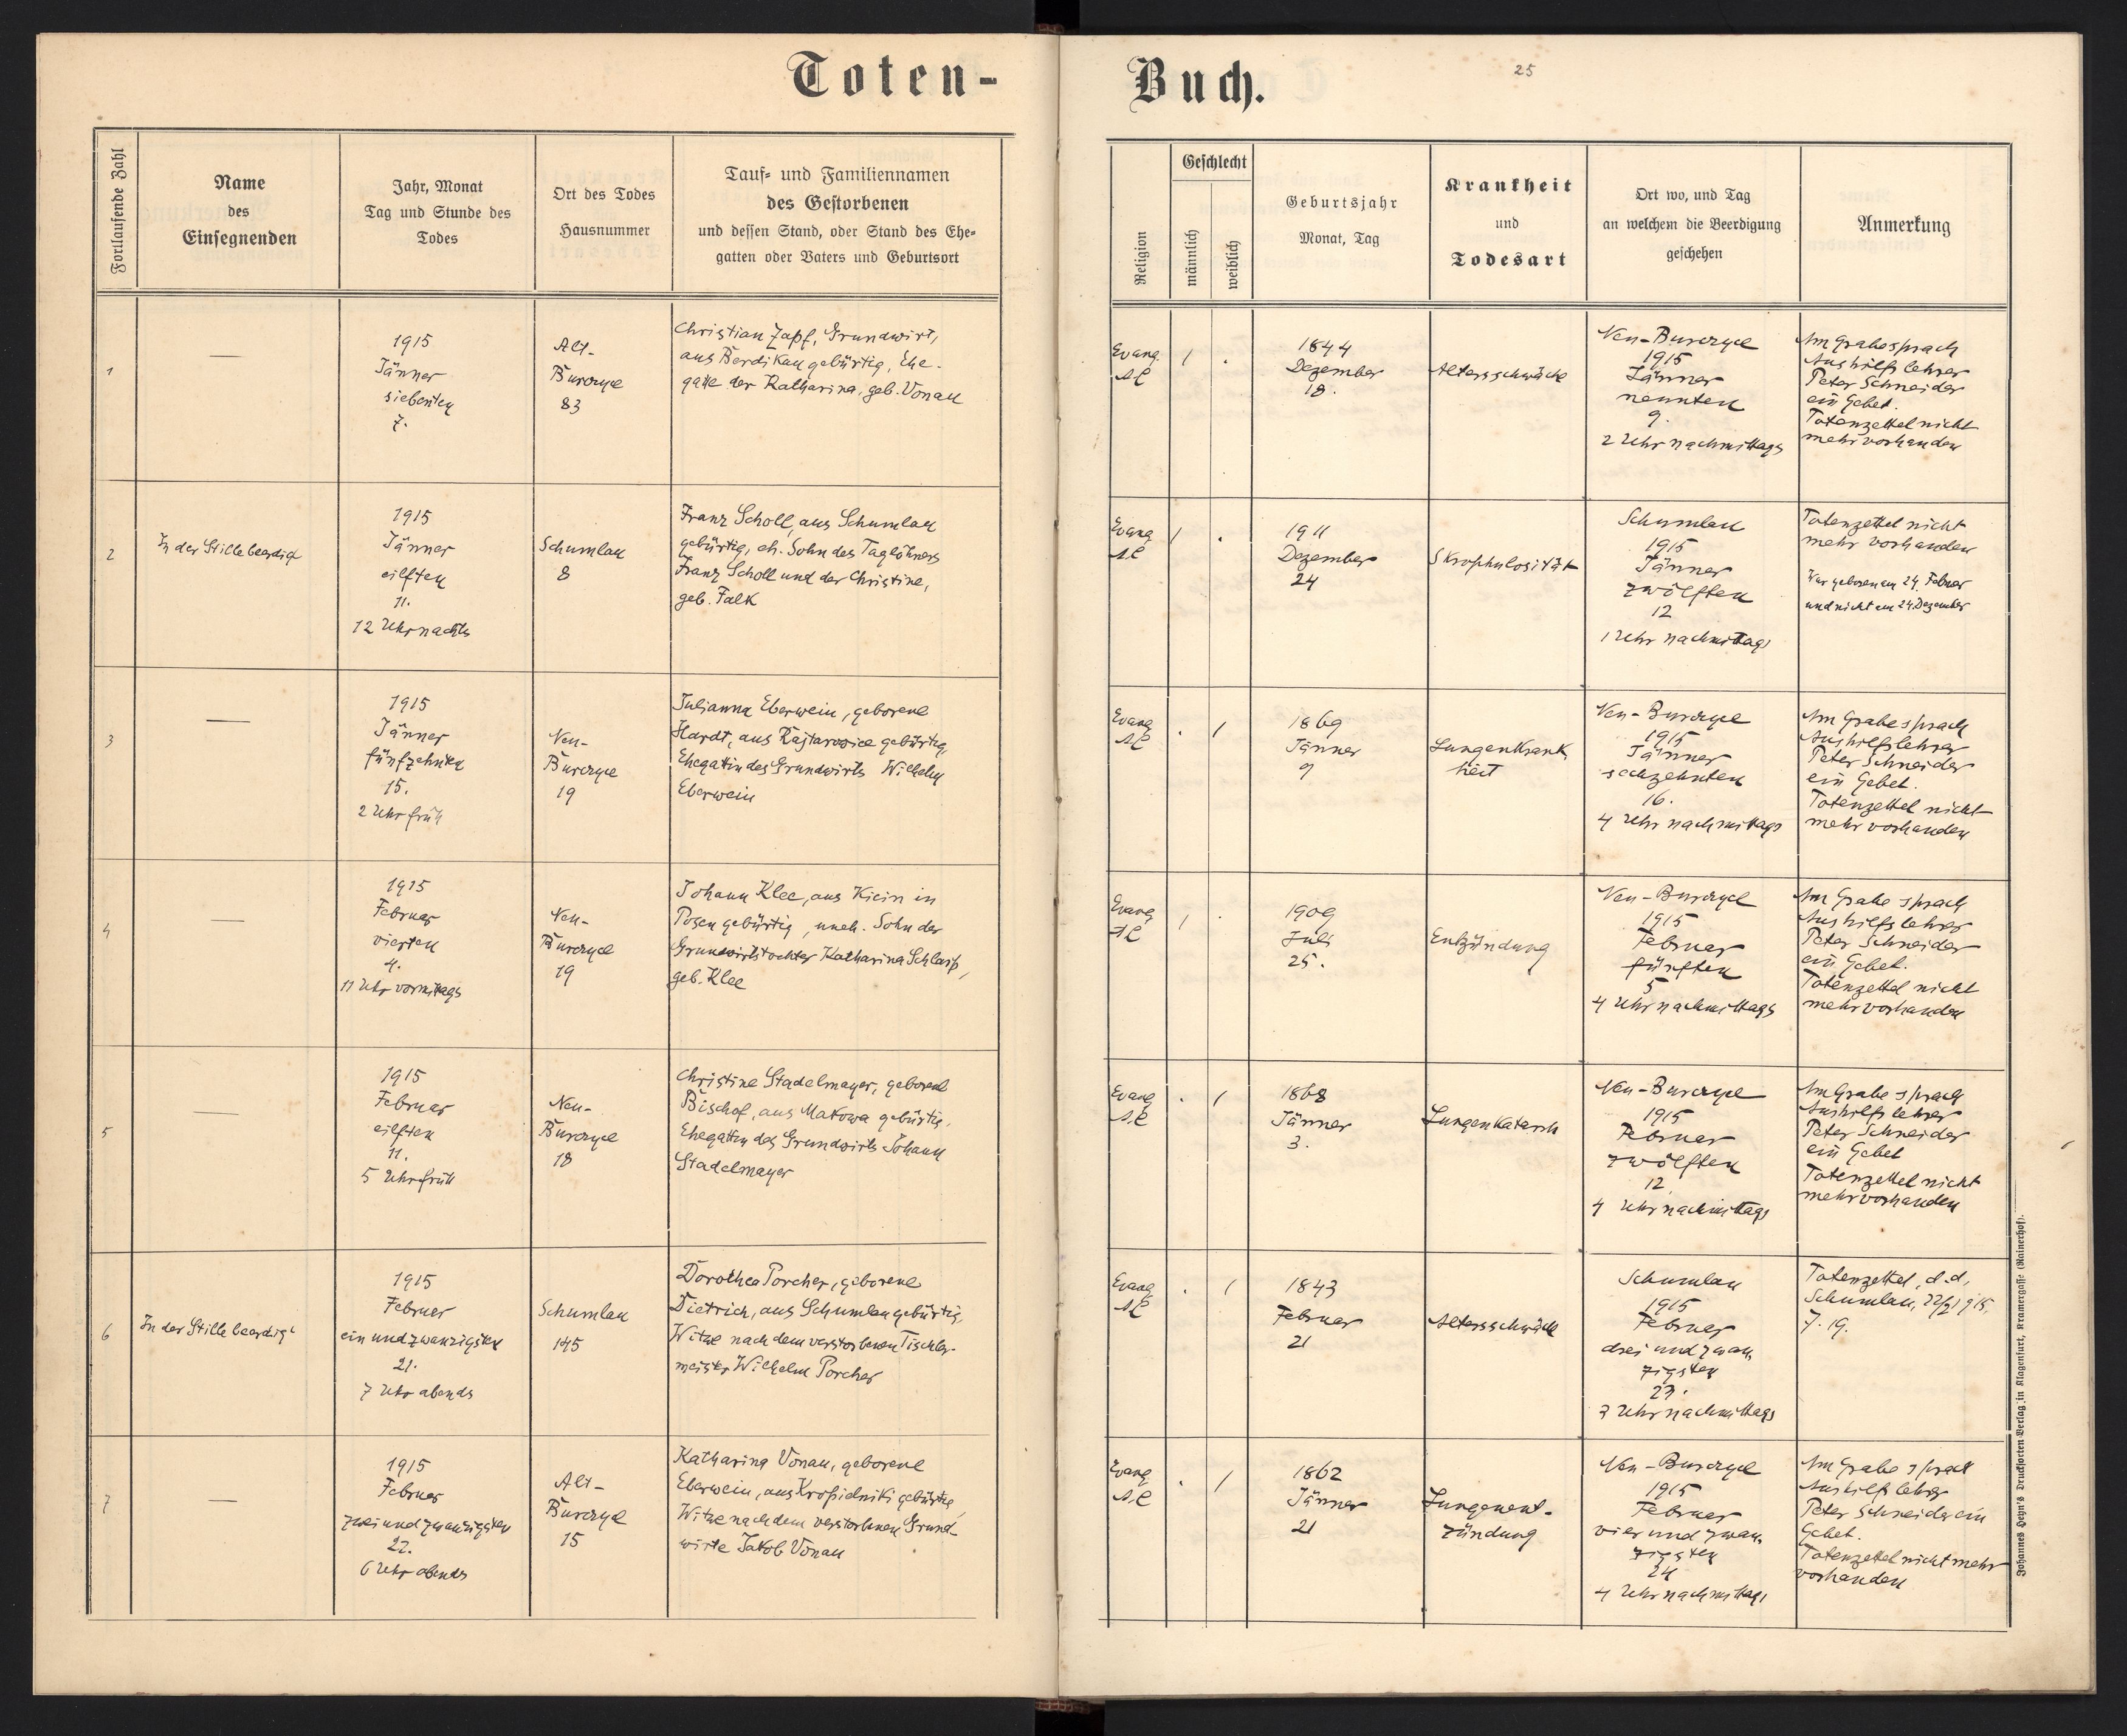 Toten-
Fortlaufende Zahl
Name
des
Einsegnenden
Jahr, Monat
Tag und Stunde des
Todes
Ort des Todes
Hausnummer
Tauf- und Familiennamen
des Gestorbenen
und dessen Stand, oder Stand des Ehe-
gatten oder Vaters und Geburtsort
1
—
1915
Jänner
siebenten
7.
Alt-
Burczyce
83
Christian Zapf, Grundwirt,
aus Berdikau gebürtig, Ehe-
gatte der Katharina, geb. Vonau
2
In der Stille beerdigt
1915
Jänner
eilften
11.
12 Uhr nachts
Schumlau
8
Franz Scholl, aus Schumlau
gebürtig, eh. Sohn des Taglöhners
Franz Scholl und der Christine,
geb. Falk
3
—
1915
Jänner
fünfzehnten
15.
2 Uhr früh
Neu-
Burczyce
19
Julianna Eberwein, geborene
Hardt, aus Rajtarowice gebürtig,
Ehegattin des Grundwirts Wilhelm
Eberwein
4
—
1915
Februar
vierten
4.
11 Uhr vormittags
Neu-
Burczyce
19
Johann Klee, aus Kicin in
Posen gebürtig, uneh. Sohn der
Grundwirtstochter Katharina Schlarp,
geb. Klee
5
—
1915
Februar
eilften
11.
5 Uhr früh
Neu-
Burczyce
18
Christine Stadelmayer, geborene
Bischof, aus Makowa gebürtig,
Ehegattin des Grundwirts Johann
Stadelmayer
6
In der Stille beerdigt
1915
Februar
ein und zwanzigsten
21.
7 Uhr abends
Schumlau
145
Dorothea Porcher, geborene
Dietrich, aus Schumlau gebürtig,
Witwe nach dem verstorbenen Tischler-
meister Wilhelm Porcher
7
—
1915
Februar
zwei und zwanzigsten
22.
6 Uhr abends
Alt-
Burczyce
15
Katharina Vonau, geborene
Eberwein, aus Kropielniki gebürtig,
Witwe nach dem verstorbenen Grund-
wirte Jakob Vonau
Buch.
25
Religion
Geschlecht
männlich
weiblich
Geburtsjahr
Monat, Tag
Krankheit
und
Todesart
Ort wo, und Tag
an welchem die Beerdigung
geschehen
Anmerkung
Evang.
AC
1
.
1844
Dezember
18.
Altersschwäche
Neu-Burczyce
1915
Jänner
neunten
9.
2 Uhr nachmittags
Am Grabe sprach
Aushilfslehrer
Peter Schneider
ein Gebet.
Totenzettel nicht
mehr vorhanden
Evang.
AC
1
.
1911
Dezember
24
Skrophulosität
Schumlau
1915
Jänner
zwölften
12
1 Uhr nachmittags
Totenzettel nicht
mehr vorhanden
War geboren am 24. Februar
und nicht am 24. Dezember
Evang
AC
.
1
1869
Jänner
9
Lungenkrank
heit
Neu-Burczyce
1915
Jänner
sechzehnten
16.
4 Uhr nachmittags
Am Grabe sprach
Aushilfslehrer
Peter Schneider
ein Gebet.
Totenzettel nicht
mehr vorhanden
Evang
AC
1
.
1909
Juli
25.
Entzündung
Neu-Burczyce
1915
Februar
fünften
5
4 Uhr nachmittags
Am Grabe sprach
Aushilfslehrer
Peter Schneider
ein Gebet.
Totenzettel nicht
mehr vorhanden
Evang
AC
.
1
1868
Jänner
3.
Lungenkatarrh
Neu-Burczyce
1915
Februar
zwölften
12
4 Uhr nachmittags
Am Grabe sprach
Aushilfslehrer
Peter Schneider
ein Gebet
Totenzettel nicht
mehr vorhanden
Evang
AC
.
1
1843
Februar
21
Altersschwäche
Schumlau
1915
Februar
drei und zwan
zigsten
23.
3 Uhr nachmittags
Totenzettel, d.d.
Schumlau, 22/2 1915,
Z. 19.
Evang
AC
.
1
1862
Jänner
21
Lungenent-
zündung
Neu-Burczyce
1915
Februar
vier und zwan,
zigsten
24
4 Uhr nachmittags
Am Grabe sprach
Aushilfslehrer
Peter Schneider ein
Gebet.
Totenzettel nicht mehr
vorhanden
Johannes Heyn's Drucksorten-Verlag in Klagenfurt, Kramergasse (Rainerhof).